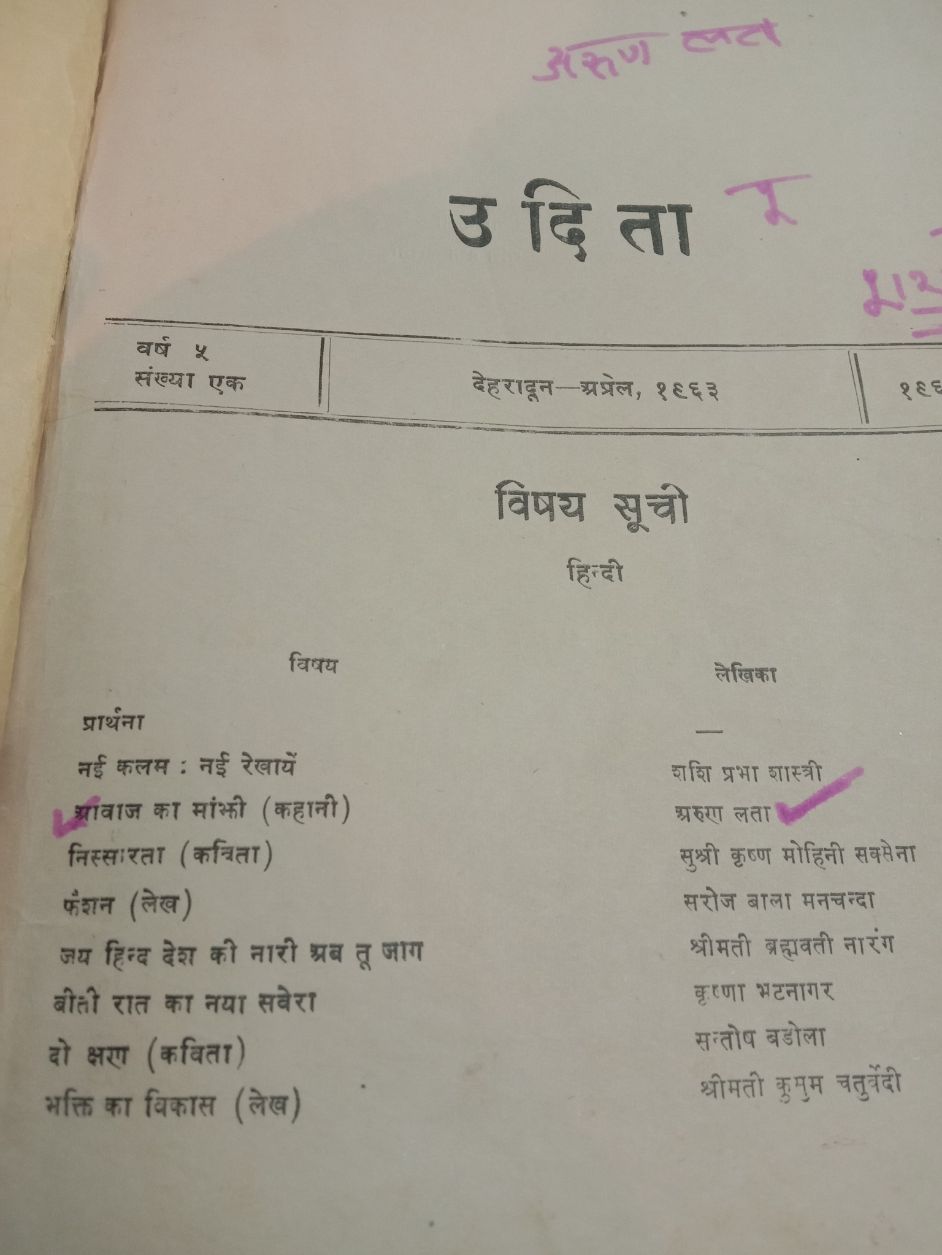 अरुण लता
उदिता
वर्ष ५
संख्या एक
देहरादून—अप्रेल, १९६३
१९६
विषय सूची
हिन्दी
विषय लेखिका
प्रार्थना —
नई कलम : नई रेखायें शशि प्रभा शास्त्री
आवाज का मांझी (कहानी) अरुण लता
निस्सारता (कविता) सुश्री कृष्ण मोहिनी सक्सेना
फैशन (लेख) सरोज बाला मनचन्दा
जय हिन्द देश की नारी अब तू जाग श्रीमती ब्रह्मवती नारंग
बीती रात का नया सवेरा कृष्णा भटनागर
दो क्षण (कविता) सन्तोष बडोला
भक्ति का विकास (लेख) श्रीमती कुसुम चतुर्वेदी